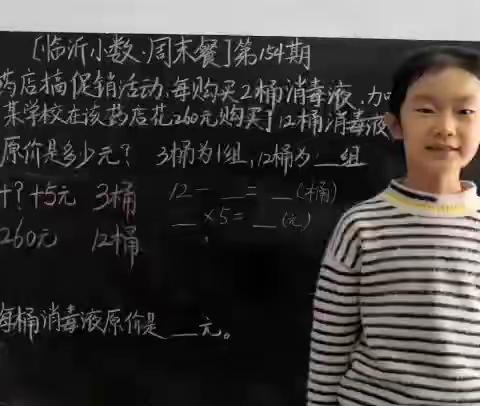 [临沂小数·周末餐]第154期
药店搞促销活动,每购买2桶消毒液,加
某学校在该药店花260元购买了12桶消毒液
原价是多少元? 3桶为1组,12桶为__组
+?+5元 3桶 12-__=__(桶)
260元 12桶 __×5=__(元)
每桶消毒液原价是__元。